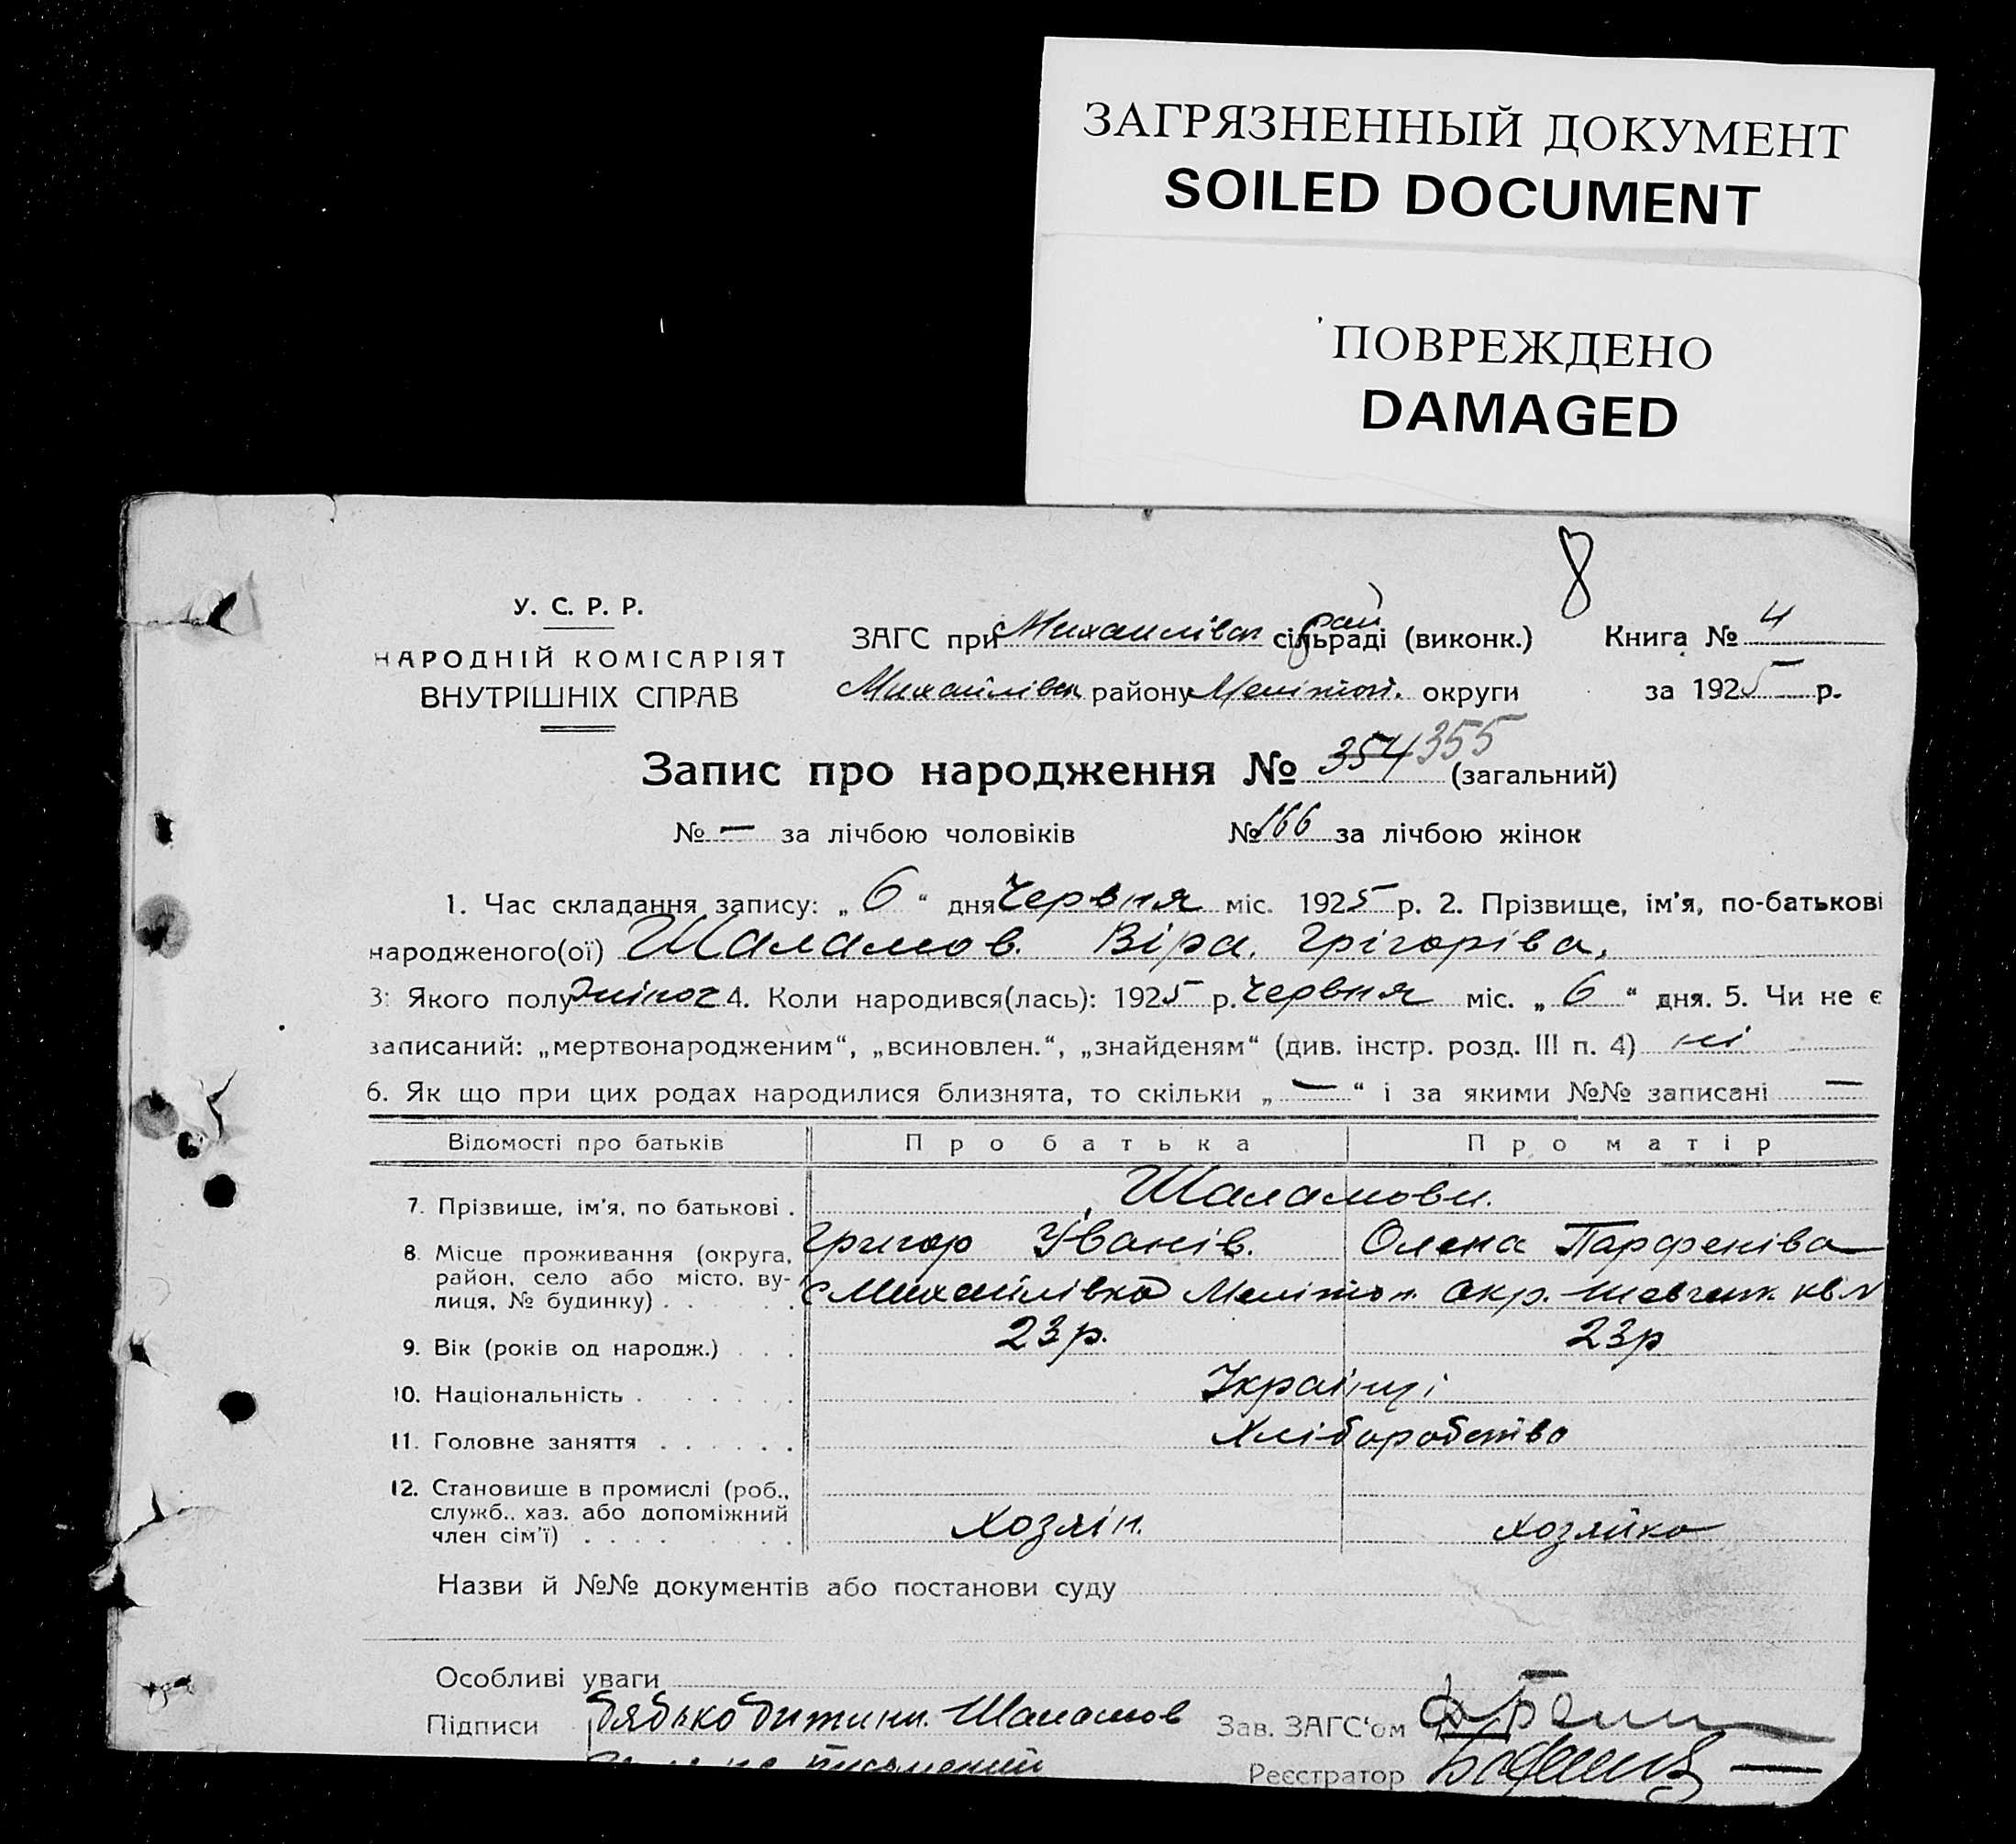 ЗАГРЯЗНЕННЫЙ ДОКУМЕНТ
SOILED DOCUMENT
ПОВРЕЖДЕНО
DAMAGED
8
У. С. Р. Р.
НАРОДНІЙ КОМІСАРІЯТ
ВНУТРІШНІХ СПРАВ
ЗАГС при Михайлівск рай сільраді (виконк.)
Книга № 4
Михайлівск району Мелітоп. округи
за 1925 р.
Запис про народження № 354 355 (загальний)
№ — за лічбою чоловіків № 166 за лічбою жінок
1. Час складання запису: „ 6 “ дня Червня міс. 1925 р. 2. Прізвище, ім'я, по-батькові
народженого(ої) Шаламов. Віра. Грігоріва.
3. Якого полу жіноч 4. Коли народився(лась): 1925 р. Червня міс. „ 6 “ дня. 5. Чи не є
записаний: „мертвонародженим“, „всиновлен.“, „знайденям“ (див. інстр. розд. III п. 4) ні
6. Як що при цих родах народилися близнята, то скільки „ — “ і за якими №№ записані —
Відомості про батьків Про батька Про матір
7. Прізвище, ім'я, по батькові . Шаламови.
8. Місце проживання (округа,
район, село або місто, ву-
лиця, № будинку) . . . .
Григор Іванів. Олена Парфеніва
с Михайлівка Мелітоп. окр. Шевченк. кв. №
9. Вік (років од народж.) . . . 23 р. 23 р
10. Національність . . . . . . Українці
11. Головне заняття . . . . . . Хліборобство
12. Становище в промислі (роб.,
служб., хаз. або допоміжний
член сім'ї) . . . . . . . .
Хозяїн. Хозяйка
Назви й №№ документів або постанови суду
Особливі уваги
Підписи Батько дитини. Шаламов Зав. ЗАГС'ом
письмений
Реєстратор